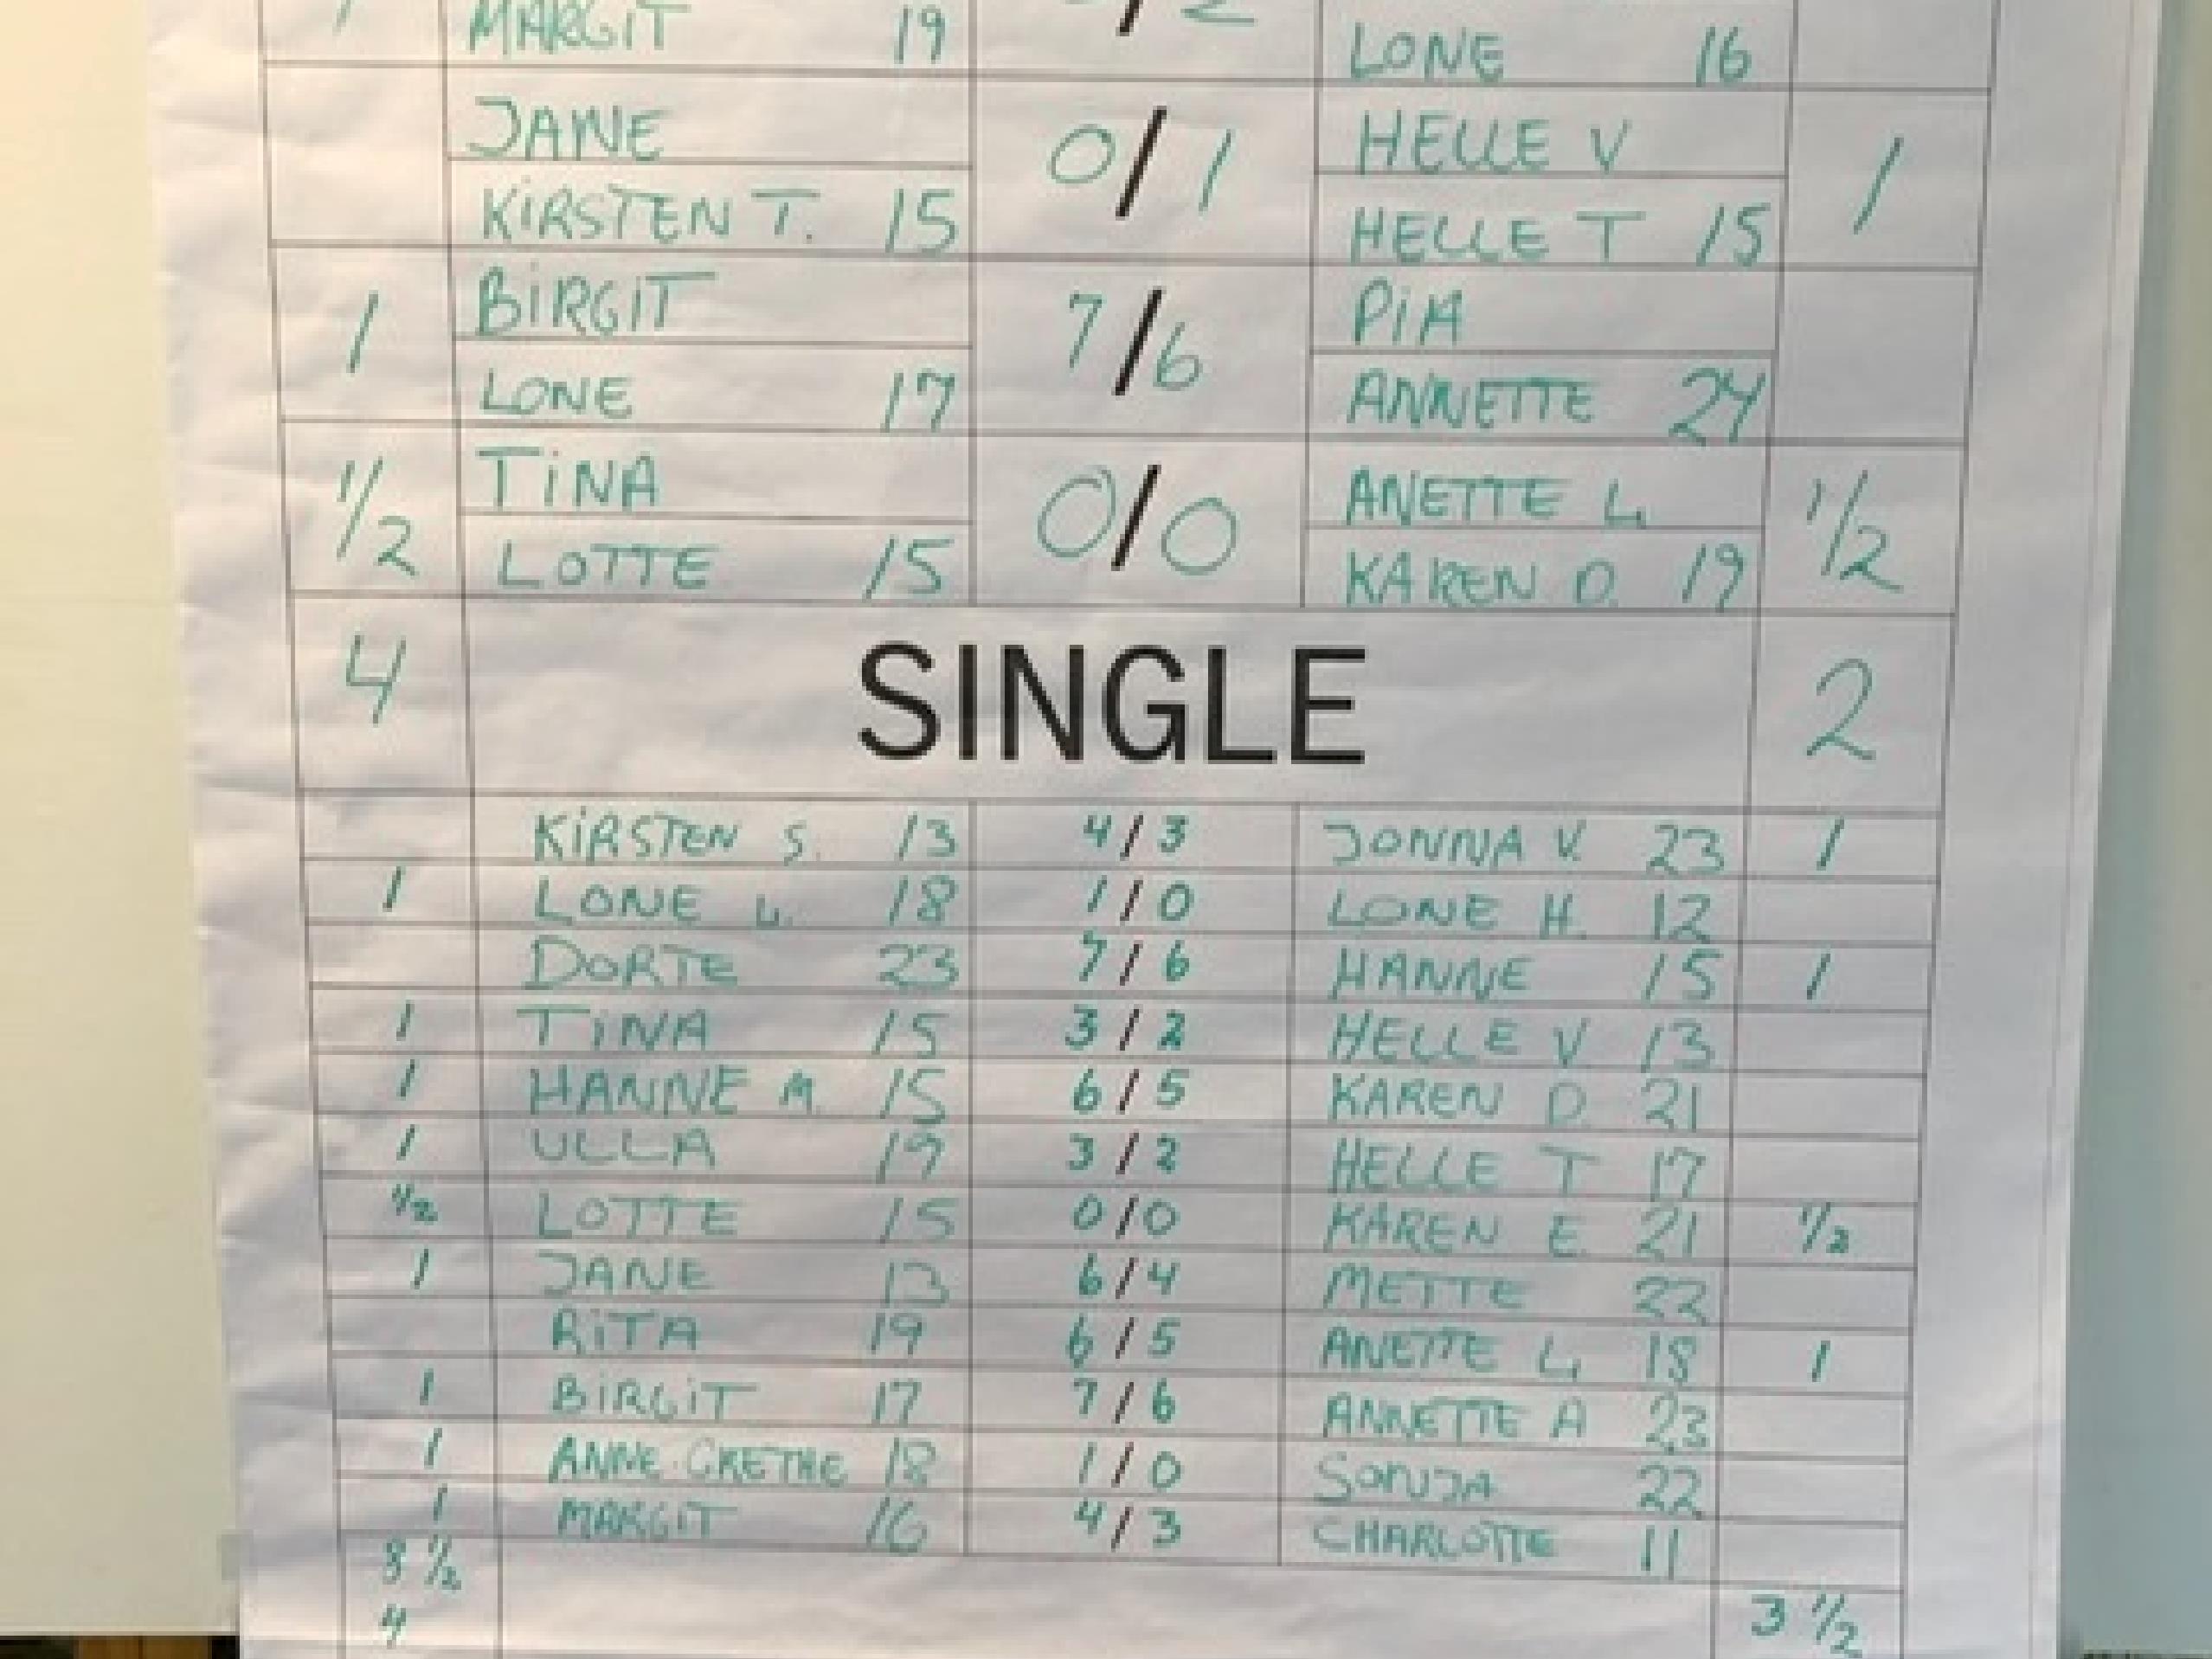 MARGIT 19 / 2
LONE 16
JANE 0/1 HELLE V 1
KIRSTEN T. 15 HELLE T 15
1 BIRGIT 7/6 PIA
LONE 17 ANNETTE 24
1/2 TINA 0/0 ANETTE L. 1/2
LOTTE 15 KAREN D. 19
4 SINGLE 2
KIRSTEN S. 13 4/3 JONNA V. 23 1
1 LONE L. 18 1/0 LONE H. 12
DORTE 23 7/6 HANNE 15 1
1 TINA 15 3/2 HELLE V 13
1 HANNE M. 15 6/5 KAREN D. 21
1 ULLA 19 3/2 HELLE T 17
1/2 LOTTE 15 0/0 KAREN E. 21 1/2
1 JANE 13 6/4 METTE 22
RITA 19 6/5 ANETTE L. 18 1
1 BIRGIT 17 7/6 ANNETTE A 23
1 ANNE-GRETHE 18 1/0 SONJA 22
1 MARGIT 16 4/3 CHARLOTTE 11
8 1/2
4 3 1/2